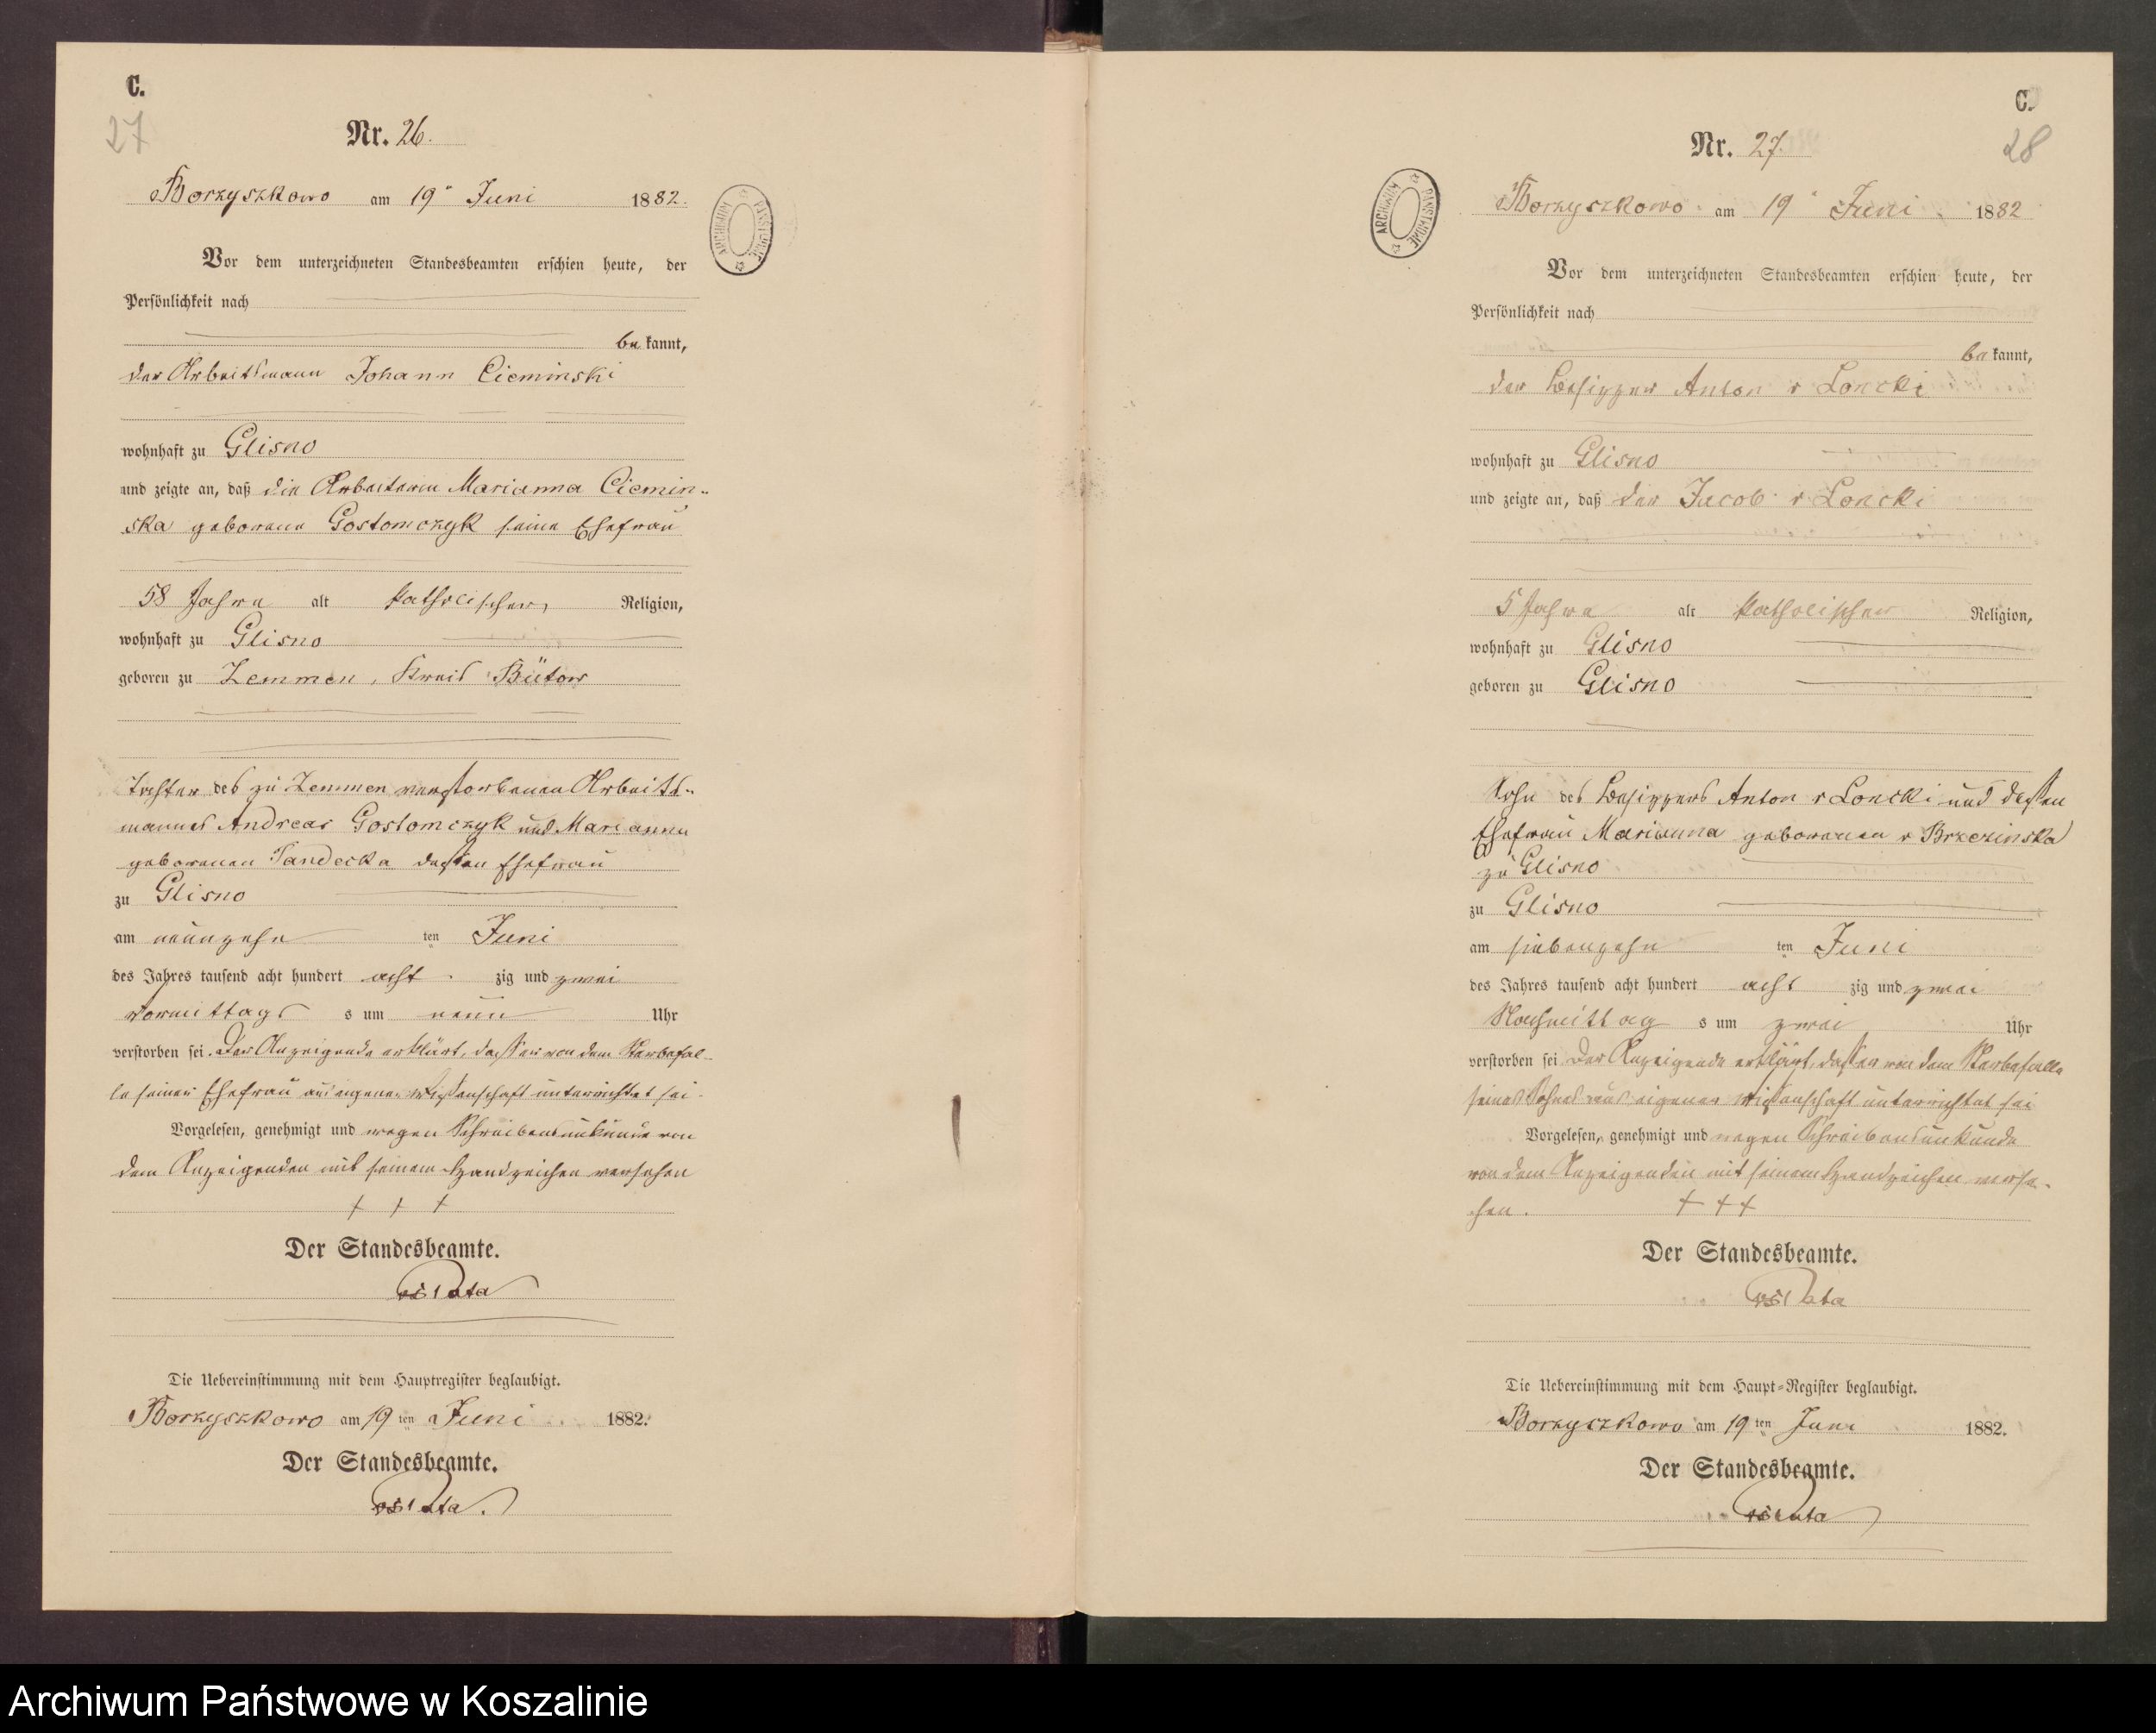 C.
27
Nr. 26.
Borzyszkowo am 19 Juni 1882.
ARCHIWUM PAŃSTWOWE
Vor dem unterzeichneten Standesbeamten erschien heute, der
Persönlichkeit nach
be kannt,
der Arbeitsmann Johann Cieminski
wohnhaft zu Glisno
und zeigte an, daß die Arbeiterin Marianna Ciemin-
ska geborene Gostomczyk seine Ehefrau
58 Jahre alt katholischer, Religion,
wohnhaft zu Glisno
geboren zu Zemmen, Kreis Bütow
Tochter des zu Zemmen verstorbenen Arbeits-
mannes Andreas Gostomczyk und Marianna
geborenen Tandecka dessen Ehefrau
zu Glisno
am neunzehn ten Juni
des Jahres tausend acht hundert acht zig und zwei
Vormittags s um neun Uhr
verstorben sei. Der Anzeigende erklärt, dass er von dem Sterbefal-
le seiner Ehefrau aus eigener Wissenschaft unterrichtet sei.
Vorgelesen, genehmigt und wegen Schreibensunkunde von
dem Anzeigenden mit seinem Handzeichen versehen
+ + +
Der Standesbeamte.
Die Uebereinstimmung mit dem Hauptregister beglaubigt.
Borzyszkowo am 19 ten Juni 1882.
Der Standesbeamte.
C.
28
Nr. 27.
Borzyszkowo am 19 Juni 1882
ARCHIWUM PAŃSTWOWE
Vor dem unterzeichneten Standesbeamten erschien heute, der
Persönlichkeit nach
be kannt,
der Besitzer Anton v Loncki
wohnhaft zu Glisno
und zeigte an, daß der Jacob v Loncki
5 Jahre alt katholischer Religion,
wohnhaft zu Glisno
geboren zu Glisno
Sohn des Besitzers Anton v Loncki und dessen
Ehefrau Marianna geborenen v Brzezinska
zu Glisno
zu Glisno
am siebenzehn ten Juni
des Jahres tausend acht hundert acht zig und zwei
Nachmittag s um zwei Uhr
verstorben sei Der Anzeigende erklärt, dass er von dem Sterbefalle
seines Sohnes aus eigener Wissenschaft unterrichtet sei
Vorgelesen, genehmigt und wegen Schreibensunkunde
von dem Anzeigenden mit seinem Handzeichen verse-
hen. + + +
Der Standesbeamte.
Die Uebereinstimmung mit dem Haupt-Register beglaubigt.
Borzyszkowo am 19 ten Juni 1882.
Der Standesbeamte.
Archiwum Państwowe w Koszalinie